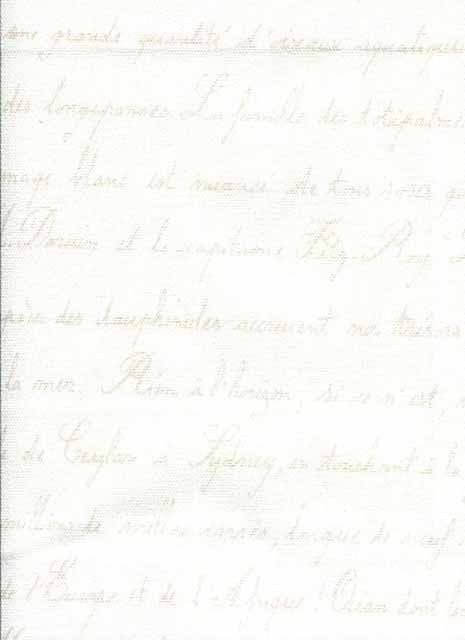 une grande quantité d'oiseaux aquatiques
des longipennes. La famille des totipalmes
mage blanc est nuancé de tons roses qu
Darwin et le capitaine Fitz-Roy
des dauphinules accrurent nos trésors
la mer. Rien à l'horizon, si ce n'est,
de Ceylan à Sydney, en touchant à la
milles carrés, longue de neuf
de l'Europe et de l'Afrique! Océan dont les